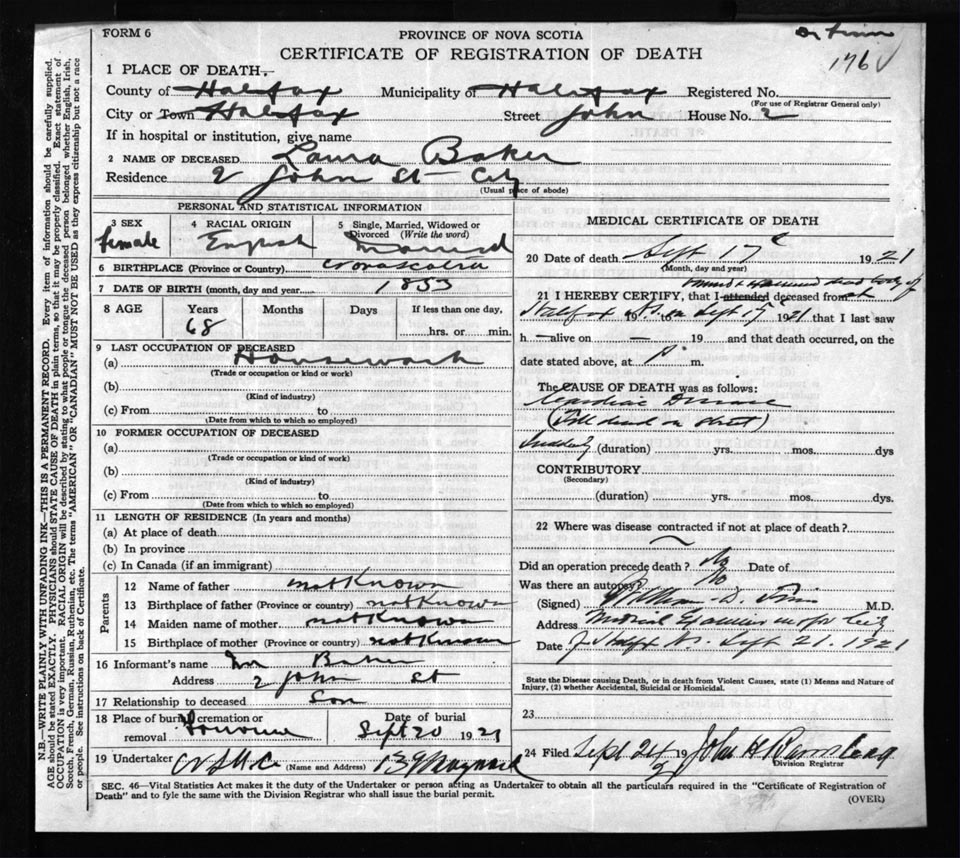 FORM 6
PROVINCE OF NOVA SCOTIA
CERTIFICATE OF REGISTRATION OF DEATH
176
1 PLACE OF DEATH.
County of Halifax Municipality of Halifax Registered No.
(For use of Registrar General only)
City or Town Halifax Street John House No. 2
If in hospital or institution, give name
2 NAME OF DECEASED Laura Baker
Residence 2 John St City
(Usual place of abode)
PERSONAL AND STATISTICAL INFORMATION
3 SEX
female
4 RACIAL ORIGIN
English
5 Single, Married, Widowed or Divorced (Write the word)
Married
6 BIRTHPLACE (Province or Country) Nova Scotia
7 DATE OF BIRTH (month, day and year) 1853
8 AGE Years Months Days If less than one day,
68 hrs. or min.
9 LAST OCCUPATION OF DECEASED
(a) Housework
(Trade or occupation or kind or work)
(b)
(Kind of industry)
(c) From to
(Date from which to which so employed)
10 FORMER OCCUPATION OF DECEASED
(a)
(Trade or occupation or kind or work)
(b)
(Kind of industry)
(c) From to
(Date from which to which so employed)
11 LENGTH OF RESIDENCE (In years and months)
(a) At place of death
(b) In province
(c) In Canada (if an immigrant)
Parents
12 Name of father not Known
13 Birthplace of father (Province or country) not Known
14 Maiden name of mother not Known
15 Birthplace of mother (Province or country) not Known
16 Informant's name Baker
Address 2 John St
17 Relationship to deceased Son
18 Place of burial, cremation or removal
Date of burial
Sept 20 1921
19 Undertaker (Name and Address) 139 Maynard
MEDICAL CERTIFICATE OF DEATH
20 Date of death Sept 17 1921
(Month, day and year)
viewed dead body of
21 I HEREBY CERTIFY, that I attended deceased from at
Halifax 19 N.S. on Sept 17 1921 that I last saw
h — alive on — 19 and that death occurred, on the
date stated above, at P. m.
The CAUSE OF DEATH was as follows:
Cardiac Disease
(Fell dead on street)
Suddenly (duration) yrs. mos. dys
CONTRIBUTORY
(Secondary)
(duration) yrs. mos. dys.
22 Where was disease contracted if not at place of death?
Did an operation precede death? No Date of
Was there an autopsy? No
(Signed) William D. Finn M.D.
Address Medical Examiner for City
Date Halifax N.S. Sept 21. 1921
State the Disease causing Death, or in death from Violent Causes, state (1) Means and Nature of
Injury, (2) whether Accidental, Suicidal or Homicidal.
23
24 Filed Sept 24 19 John H
Division Registrar
SEC. 46—Vital Statistics Act makes it the duty of the Undertaker or person acting as Undertaker to obtain all the particulars required in the "Certificate of Registration of
Death" and to fyle the same with the Division Registrar who shall issue the burial permit.
(OVER)
N.B.—WRITE PLAINLY WITH UNFADING INK—THIS IS A PERMANENT RECORD. Every item of information should be carefully supplied.
AGE should be stated EXACTLY. PHYSICIANS should STATE CAUSE OF DEATH in plain terms, so that it may be properly classified. Exact statement of
OCCUPATION is very important. RACIAL ORIGIN will be described by stating to what people or tongue the deceased person belonged whether English, Irish,
Scotch, French, German, Russian, Ruthenian, etc. The terms "AMERICAN" OR "CANADIAN" MUST NOT BE USED as they express citizenship but not a race
or people. See instructions on back of Certificate.